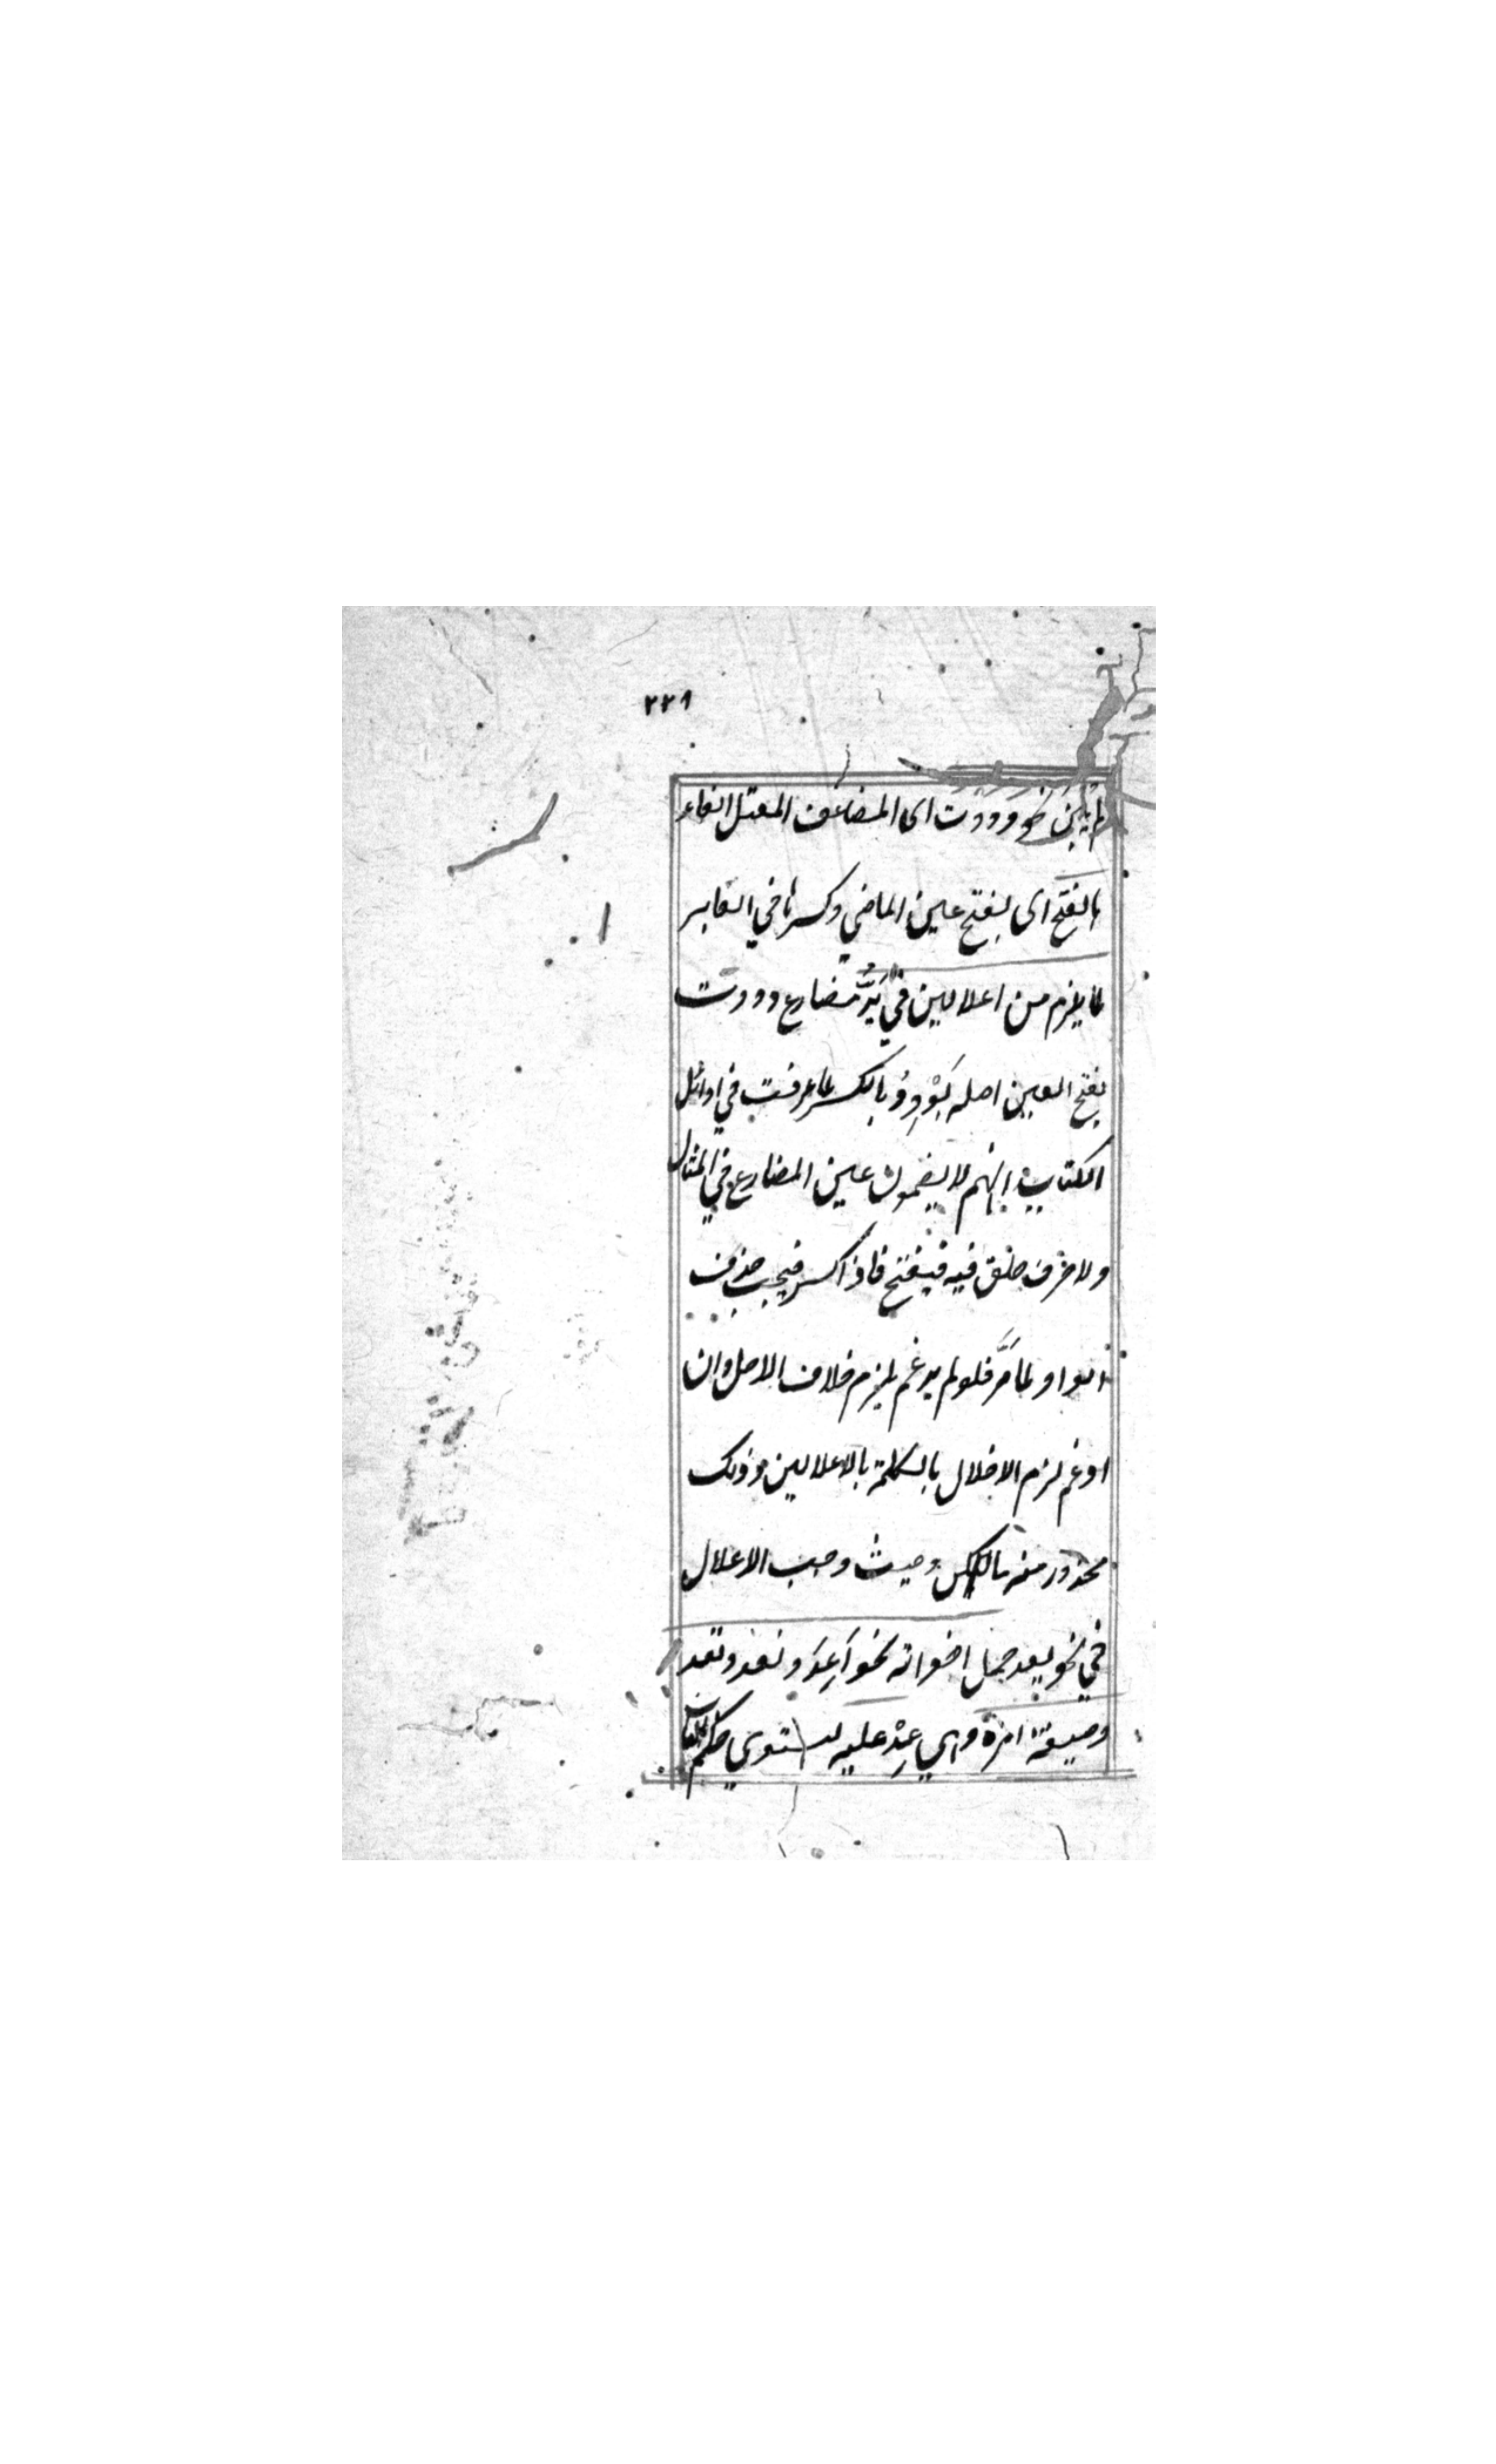 ٢٢١
لم يبن نحو وددت اى المضاعف المعتل الفاء
بالفتح اى بفتح عين الماضي وكسرها في الغابر
لما يلزم من اعلالين في يَدُّ مضارع وددت
بفتح العين اصله يَوْدِدُ بالكسر لما عرفت في اوائل
الكتاب انهم لا يضمون عين المضارع في المثال
ولا حرف حلق فيه فيفتح فاذا كسر فيجب حذف
الواو لما مَرَّ فلو لم يدغم يلزم خلاف الاصل وان
ادغم لزم الاخلال بالكلمة بالاعلالين وذلك
محذور منه وحيث وجب الاعلال
في نحو يعد حمل اخواته نحو اَعِدُ ونعد وتعد
وصيغة امره واي عِدْ عليه ليستوي حكم